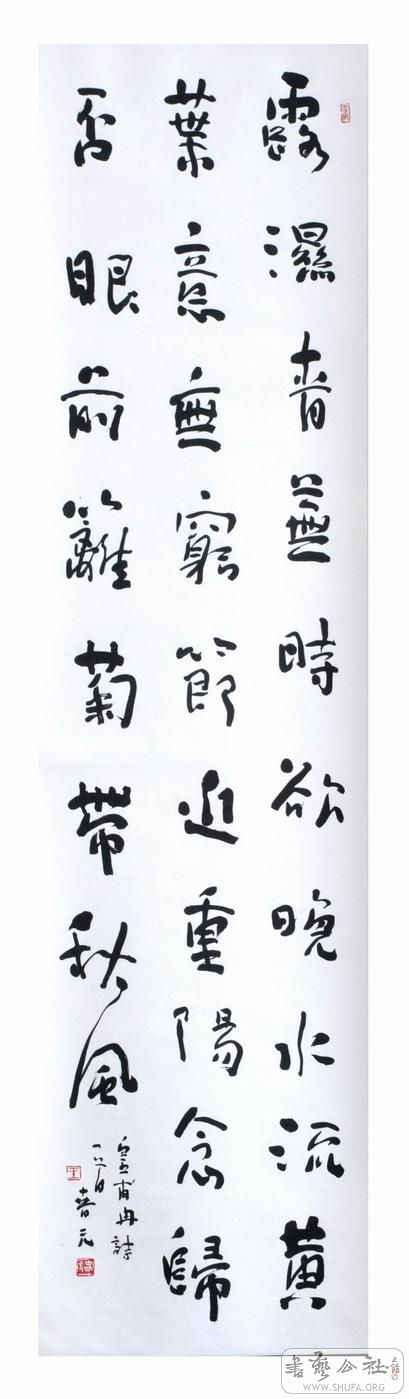 露濕青蕪時欲晚水流黄
葉意無窮節近重陽念歸
否眼前籬菊帶秋風
皇甫冉詩
元
書藝公社
WWW.SHUFA.ORG